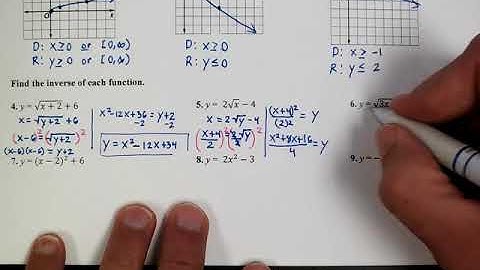 D: x ≥ 0 or [0,∞)
R: y ≥ 0 or [0,∞)
D: x ≥ 0
R: y ≤ 0
D: x ≥ -1
R: y ≤ 2
Find the inverse of each function.
4. y = √(x + 2) + 6
x = √(y+2) + 6
(x-6)² = (√(y+2))²
(x-6)(x-6) = y+2
x²-12x+36 = y+2
-2 -2
y = x²-12x+34
5. y = 2√x - 4
x = 2√y - 4
(x+4)²/(2)² = y
x²+8x+16/4 = y
6. y = √3x
7. y = (x - 2)² + 6
8. y = 2x² - 3
9. y = -